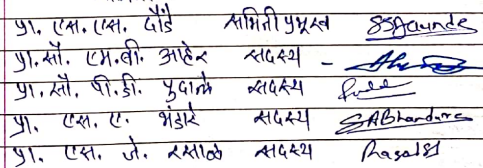 प्रा. एस. एस. दौंडे समिती प्रमुख SSDaunde
प्रा. सौ. एम. बी. आहेर सदस्य -
प्रा. सौ. पी. डी. पुदाले सदस्य
प्रा. एस. ए. भंडारे सदस्य SABhandare
प्रा. एस. जे. रसाळ सदस्य